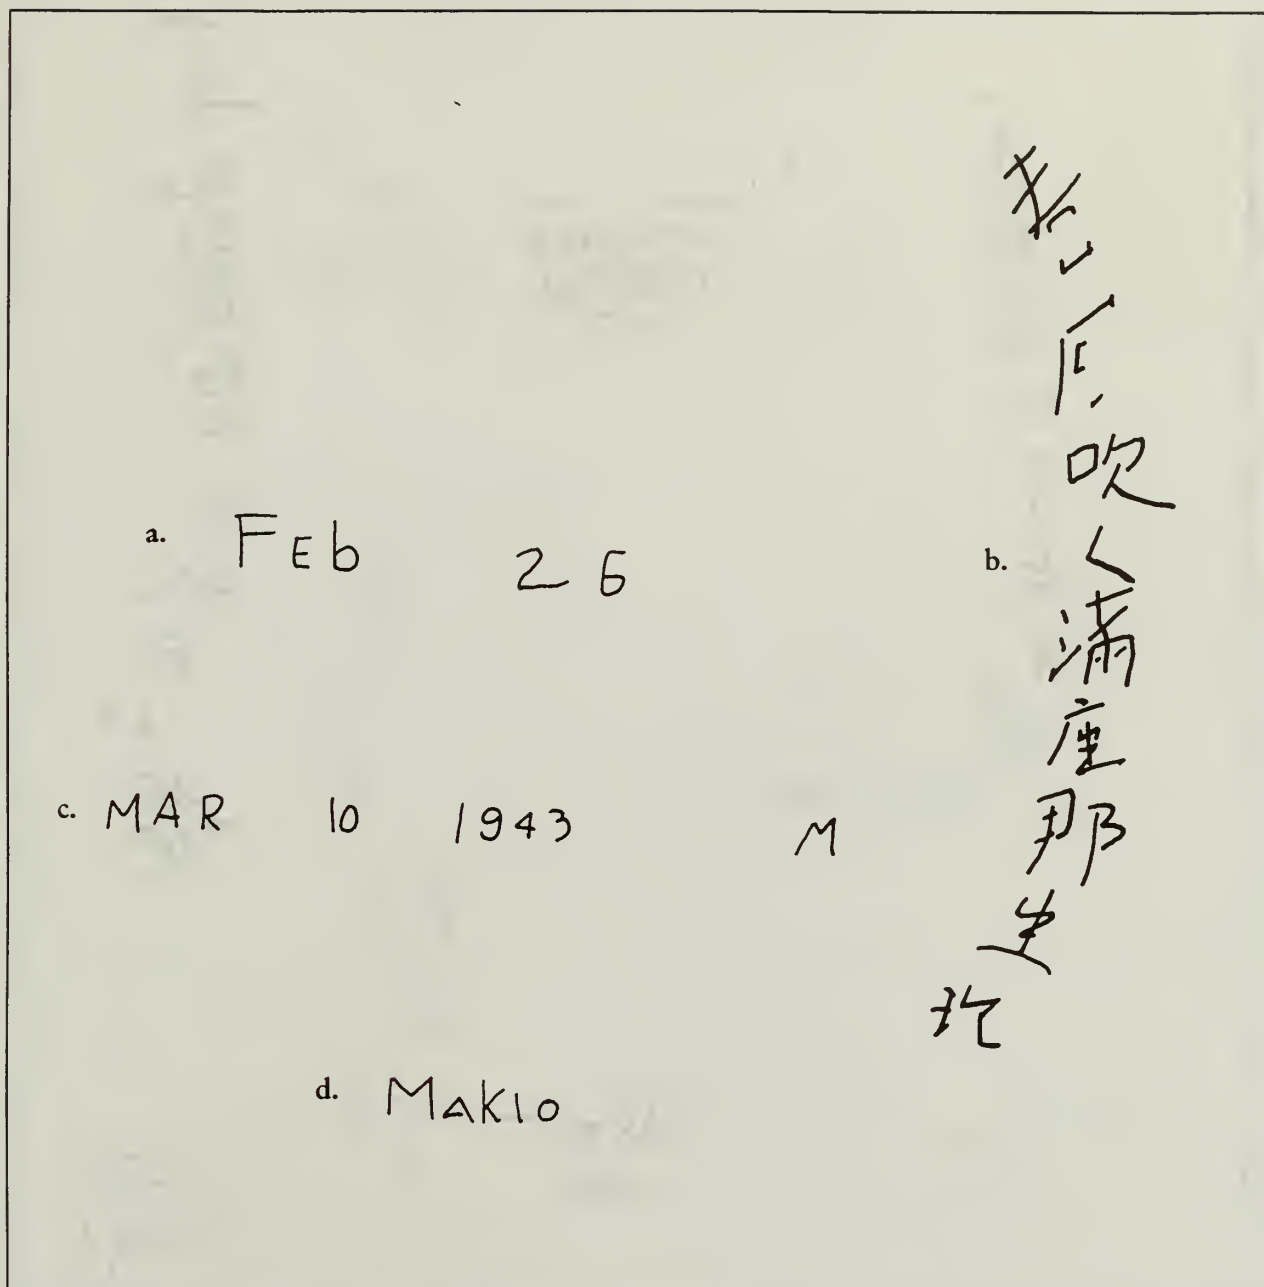 a. FEb 26
b. 吹く満座那生
c. MAR 10 1943 M
d. MAKIO